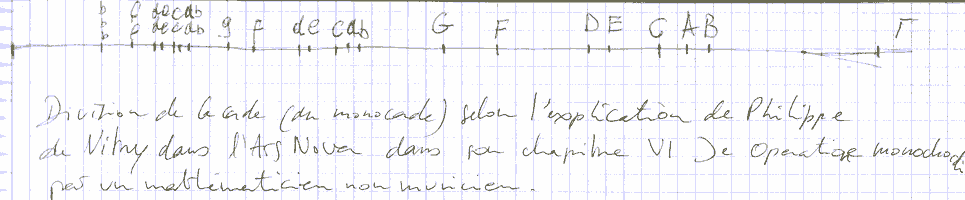 G F D E C A B Γ
Division de la corde (du monocorde) selon l'explication de Philippe
de Vitry dans l'Ars Nova dans son chapitre VI De operatione monochordi
par un mathématicien non musicien.